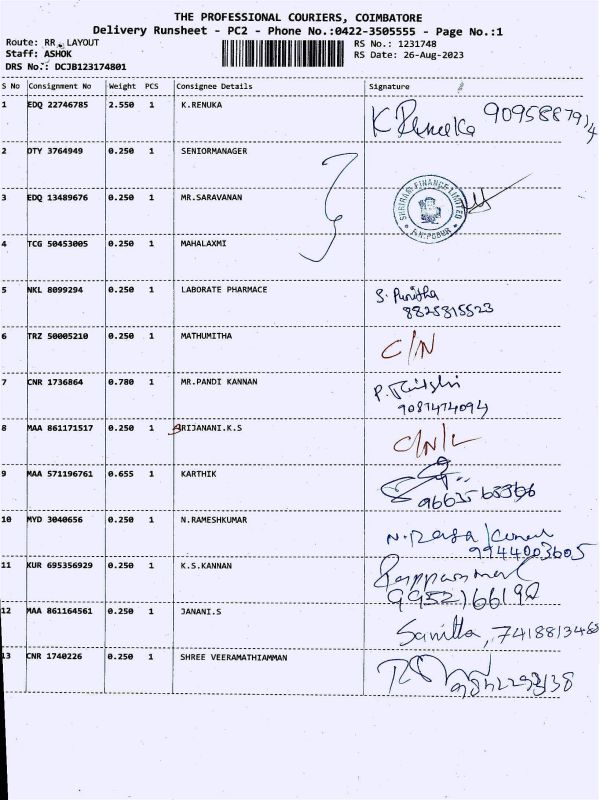 THE PROFESSIONAL COURIERS, COIMBATORE
Delivery Runsheet - PC2 - Phone No.:0422-3505555 - Page No.:1
Route: RR LAYOUT RS No.: 1231748
Staff: ASHOK RS Date: 26-Aug-2023
DRS No.: DCJB123174801
S No Consignment No Weight PCS Consignee Details Signature
1 EDQ 22746785 2.550 1 K.RENUKA K Renuka
2 DTY 3764949 0.250 1 SENIORMANAGER
SHRIRAM FINANCE LIMITED
3 EDQ 13489676 0.250 1 MR.SARAVANAN
4 TCG 50453005 0.250 1 MAHALAXMI
5 NKL 8099294 0.250 1 LABORATE PHARMACE S. Punitha
8825815523
6 TRZ 50005210 0.250 1 MATHUMITHA C/N
7 CNR 1736864 0.780 1 MR.PANDI KANNAN
9087474094
8 MAA 861171517 0.250 1 SRIJANANI.K.S C/N/L
9 MAA 571196761 0.655 1 KARTHIK
10 MYD 3040656 0.250 1 N.RAMESHKUMAR
9944003605
11 KUR 695356929 0.250 1 K.S.KANNAN
12 MAA 861164561 0.250 1 JANANI.S
13 CNR 1740226 0.250 1 SHREE VEERAMATHIAMMAN